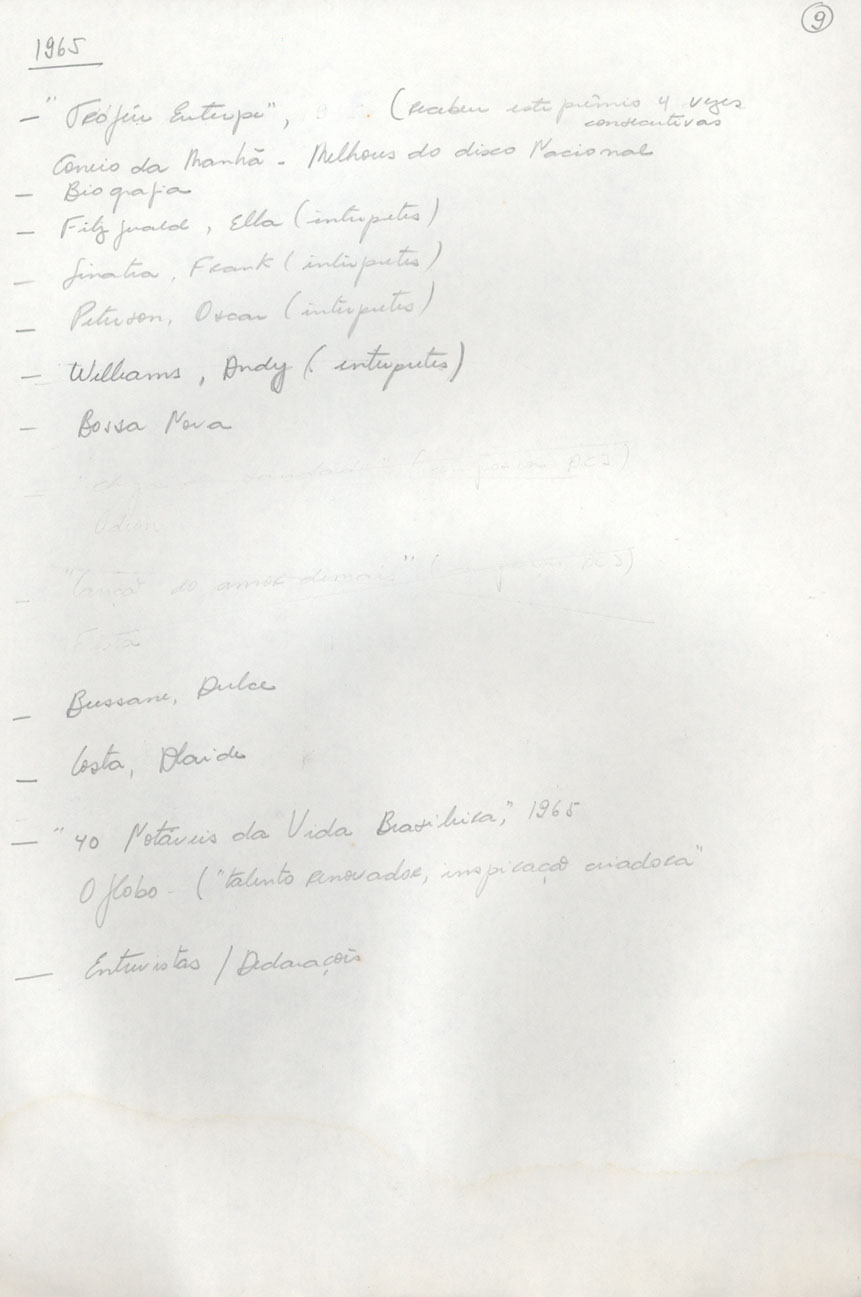 9
1965
- "Troféu Euterpe", (recebeu este prêmio 4 vezes
consecutivas
Correio da Manhã - Melhores do disco Nacional
- Biografia
- Fitzgerald, Ella (intérpretes)
- Sinatra, Frank (intérpretes)
- Peterson, Oscar (intérpretes)
- Williams, Andy (intérpretes)
- Bossa Nova
- "Chega de saudade" ( ACJ)
Odeon
- "Canção do amor demais" ( ACJ)
Festa
- Bressane, Dulce
- Costa, Alaide
- "40 Notáveis da Vida Brasileira", 1965
O Globo - ("talento renovador, inspiração criadora"
- Entrevistas / Declarações